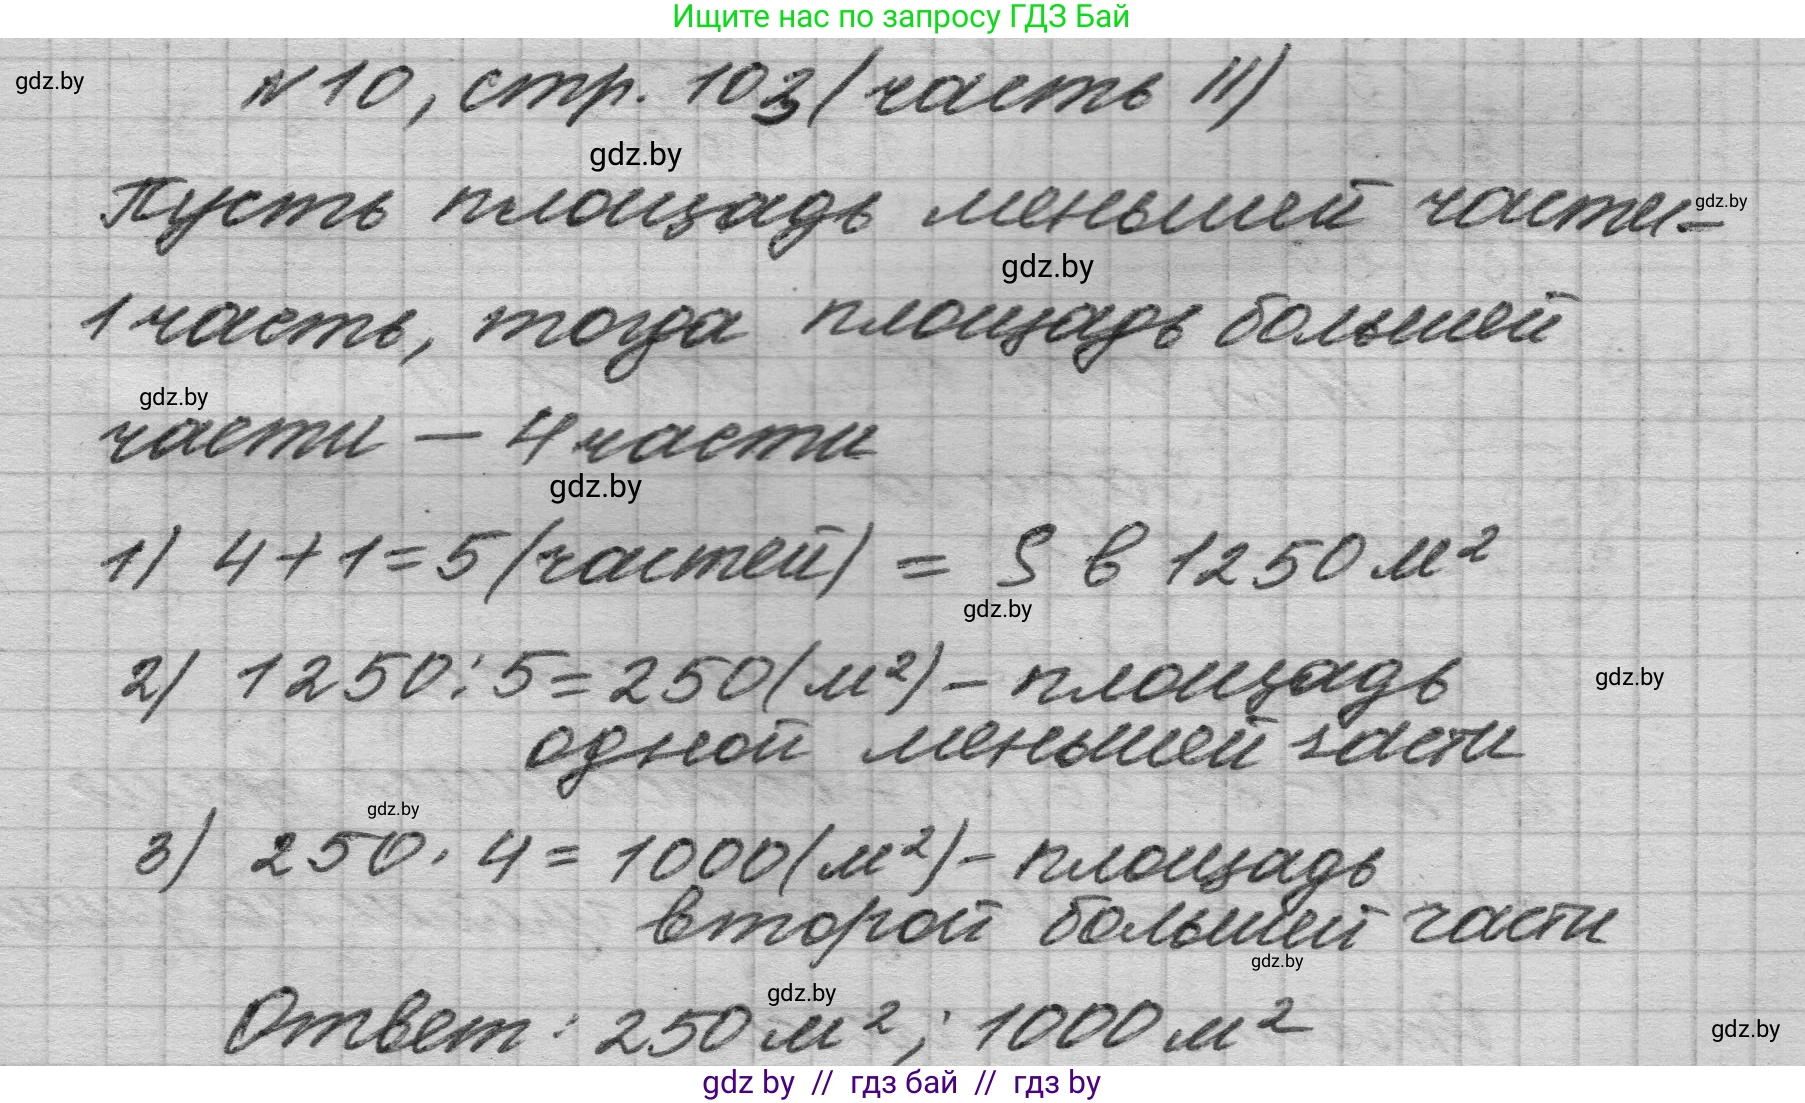 Ищите нас по запросу ГДЗ Бай
gdz.by
№10, стр. 103 (часть II)
gdz.by
Пусть площадь меньшей части-
gdz.by
gdz.by
1 часть, тогда площадь большей
gdz.by
части — 4 части
gdz.by
1) 4+1=5 (частей) = S в 1250 м²
gdz.by
2) 1250:5=250 (м²) - площадь
gdz.by
одной меньшей части
gdz.by
3) 250·4=1000 (м²) - площадь
второй большей части
gdz.by
gdz.by
Ответ: 250 м²; 1000 м²
gdz.by
gdz by // гдз бай // гдз by